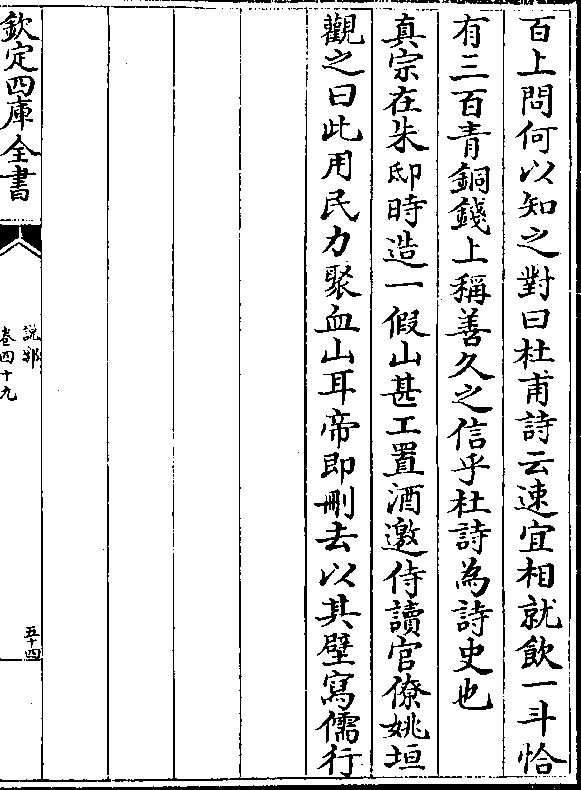 百上問何以知之對曰杜甫詩云速宜相就飲一斗恰
有三百青銅錢上稱善久之信乎杜詩為詩史也
真宗在朱邸時造一假山甚工置酒邀侍讀官僚姚垣
觀之曰此用民力聚血山耳帝即刪去以其壁寫儒行
欽定四庫全書
說郛
卷四十九
五十四